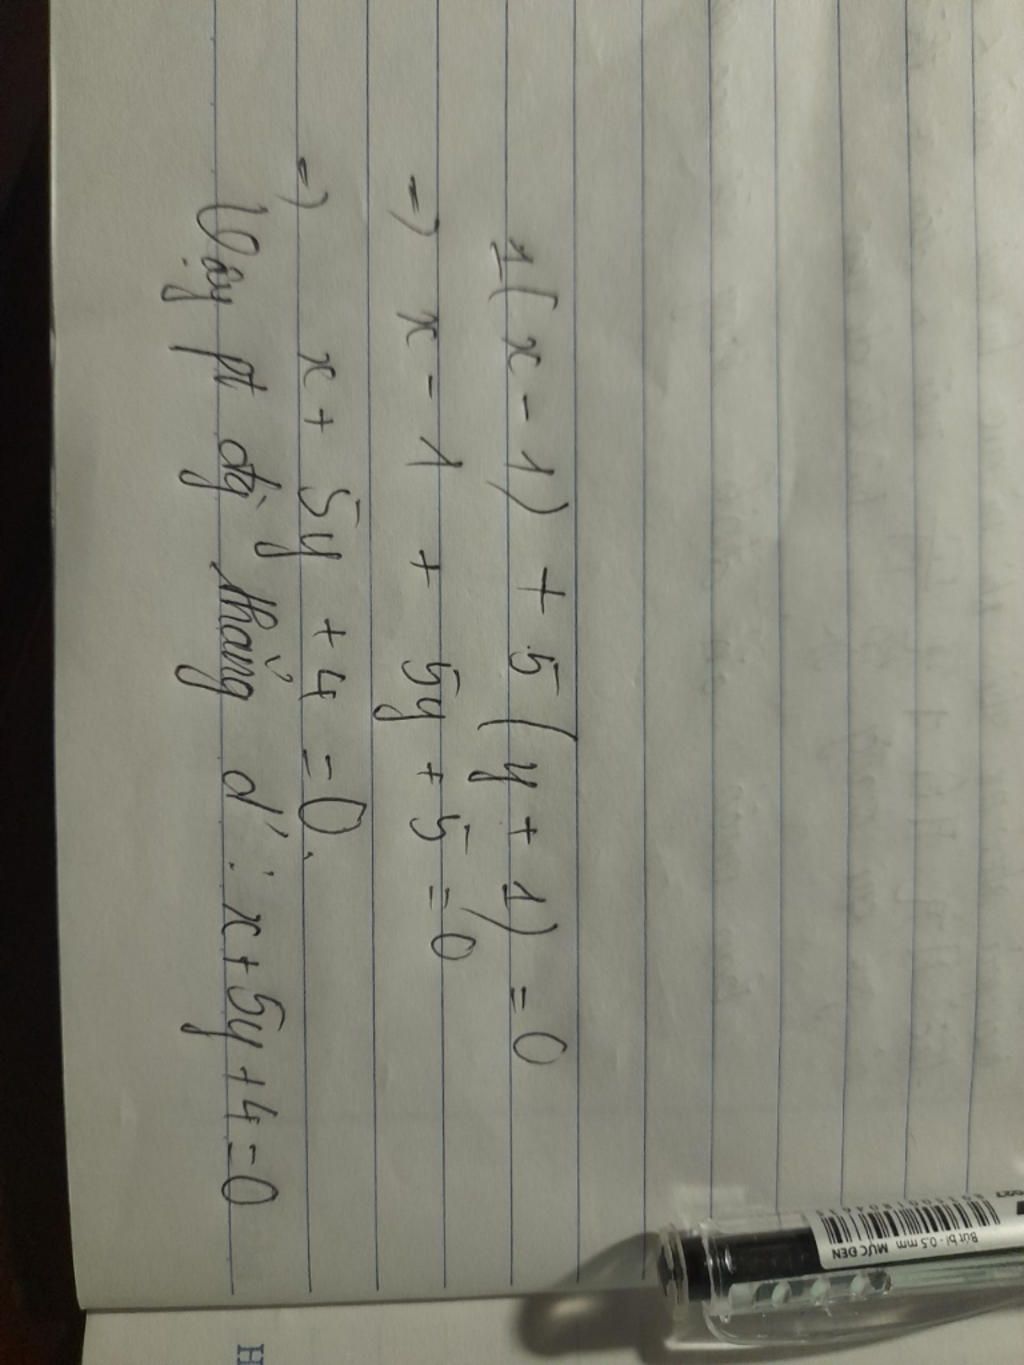 1(x - 1) + 5(y + 1) = 0
=) x - 1 + 5y + 5 = 0
=) x + 5y + 4 = 0.
Vậy pt đg` thẳng d' : x + 5y + 4 = 0
Bút bi - 0.5 mm MỰC ĐEN
H